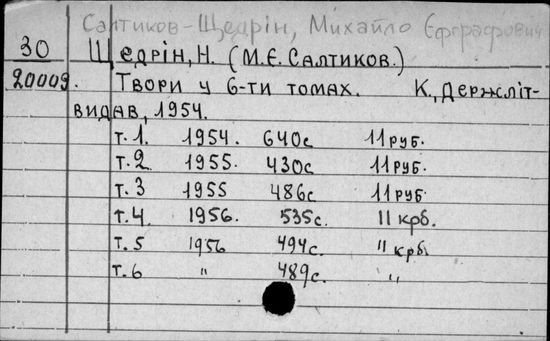 Салтиков-Щедрін, Михайло Євграфович
30 Щедрін, Н. (М.Є. Салтиков.)
20009. Твори у 6-ти томах. К., Держліт-
видав, 1954.
т. 1. 1954. 640с 11 руб.
т. 2 1955. 430с 11 руб.
т. 3 1955 486с 11 руб.
т. 4 1956. 535с. 11 крб.
т. 5 1956 494с. 11 крб.
т. 6 " 489с. "